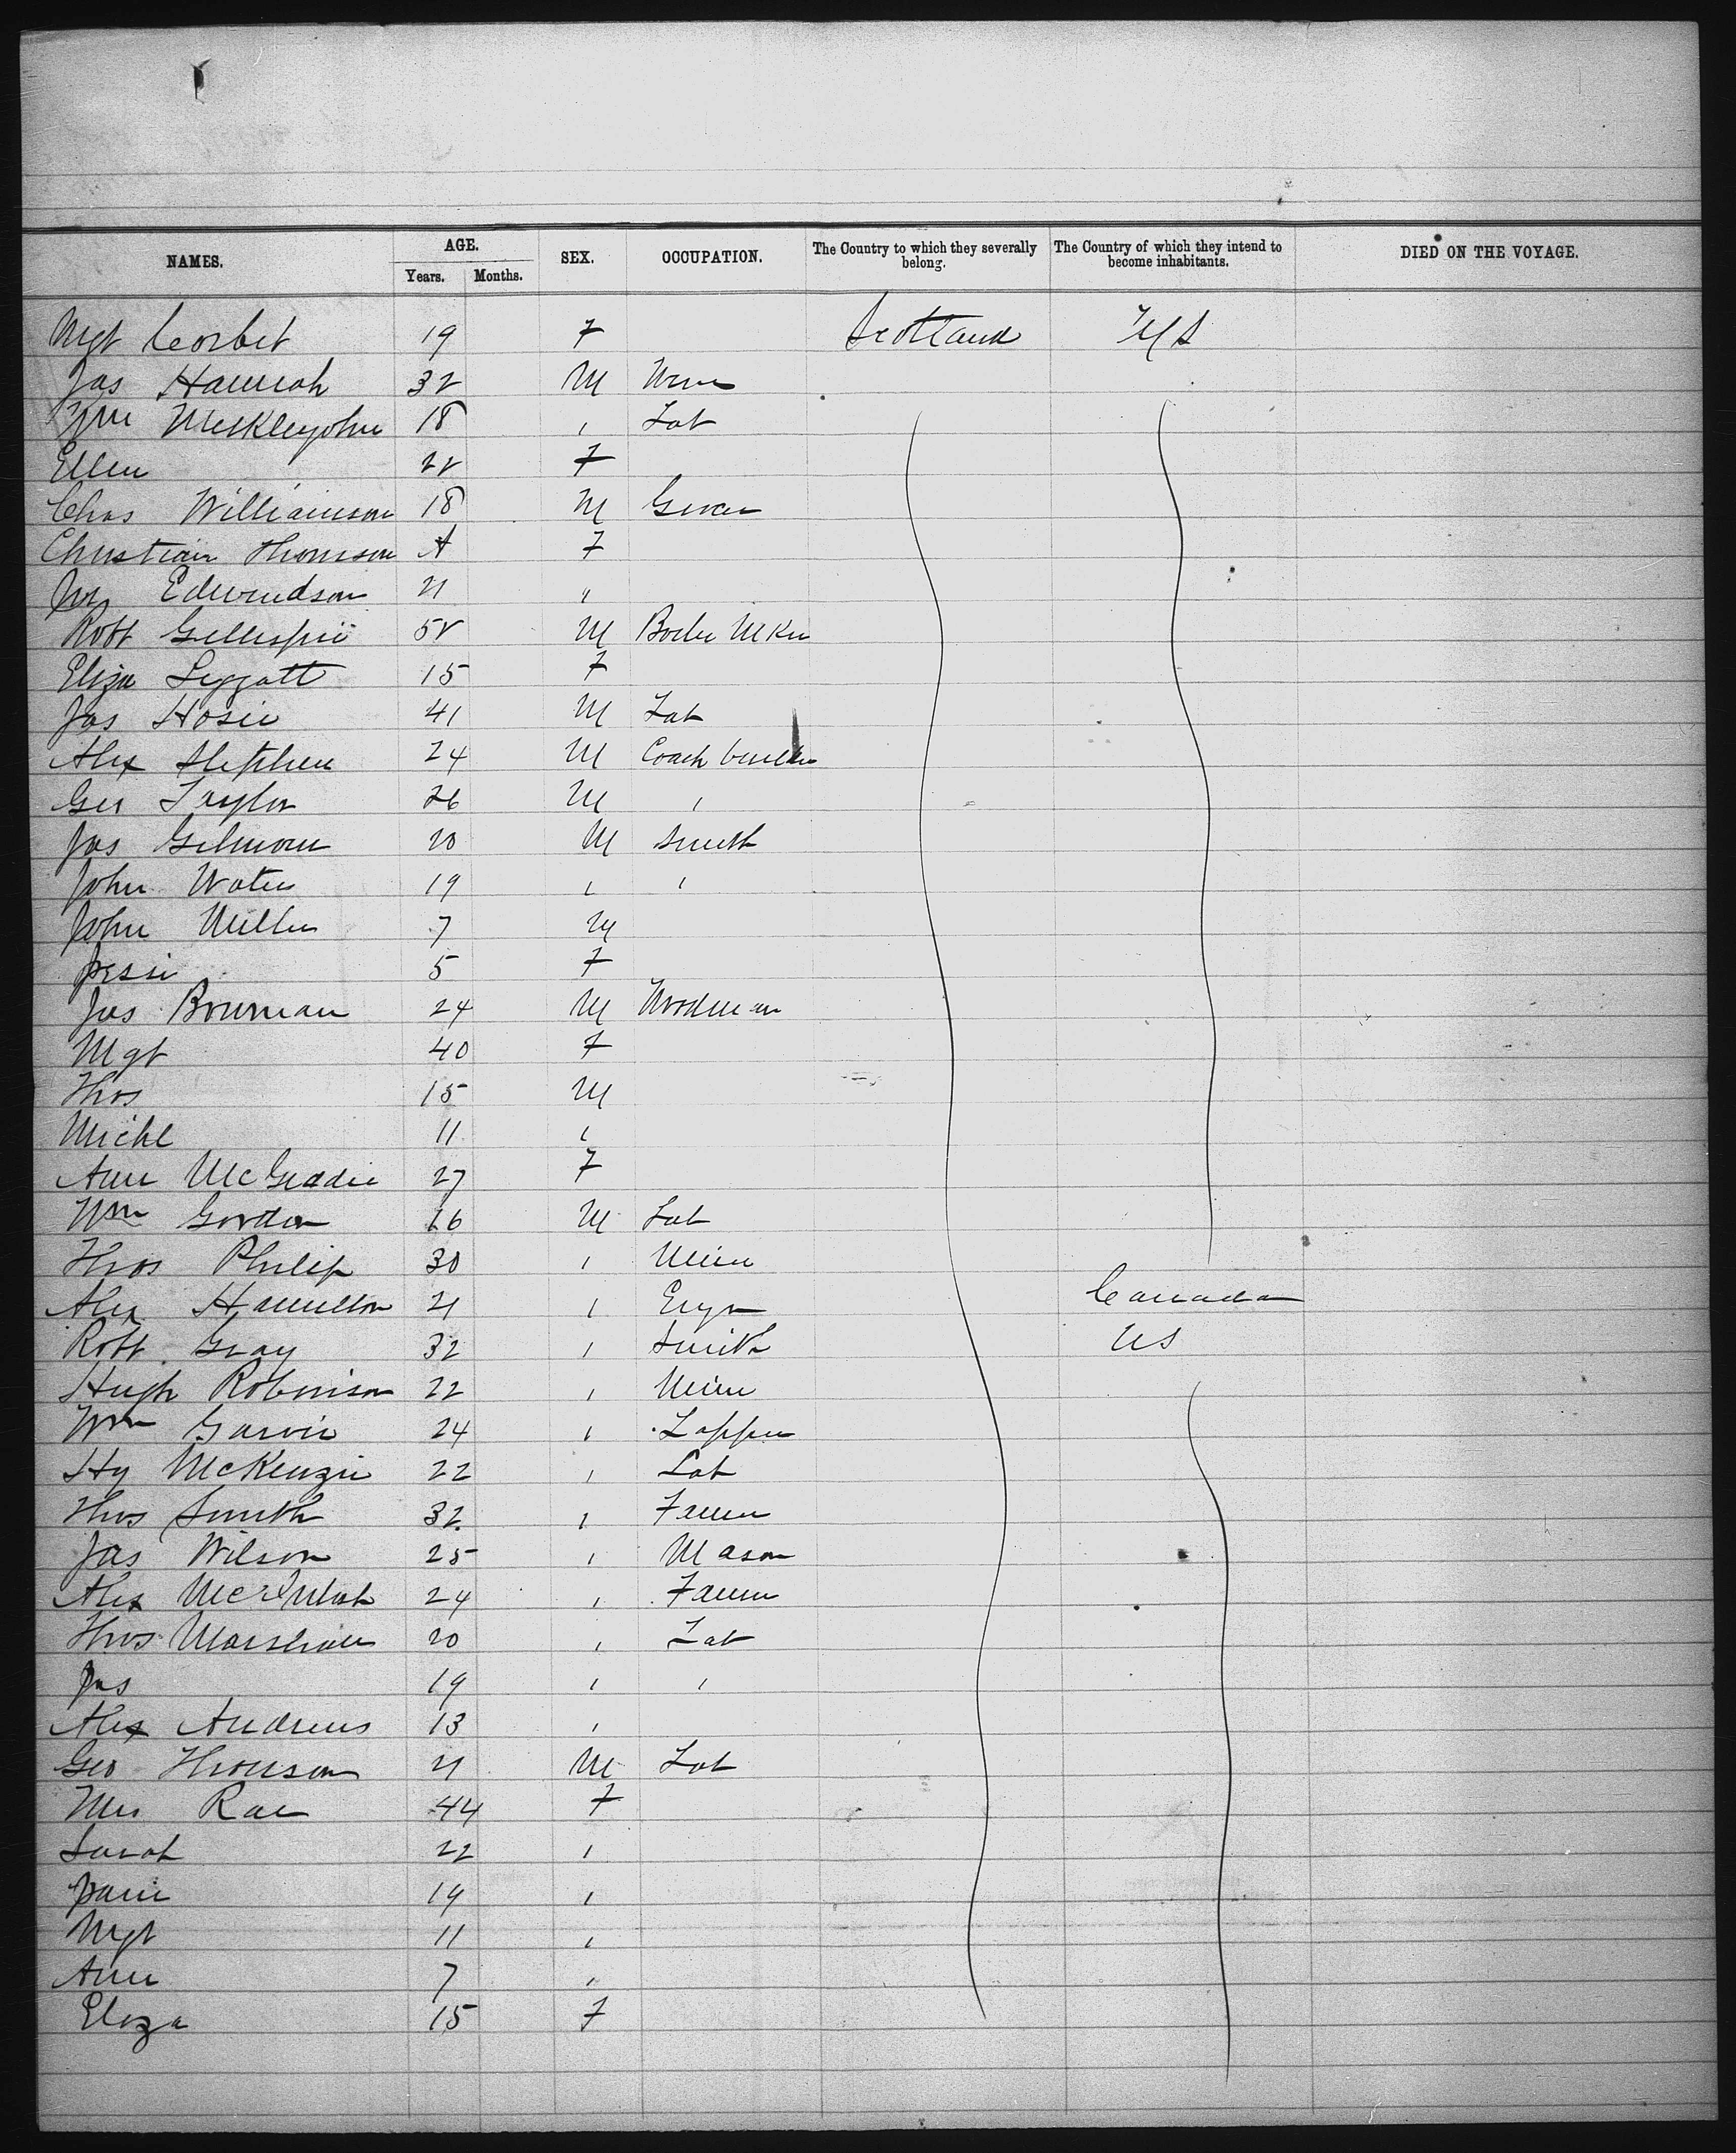 NAMES. AGE. SEX. OCCUPATION. The Country to which they severally belong. The Country of which they intend to become inhabitants. DIED ON THE VOYAGE.
Years. Months.
Mgt Corbet 19 F Scotland US
Jas Hannah 32 M
Wm Meiklejohn 18 " Lab
Ellen 22 F
Chas Williamson 18 M Grocer
Christian Thomson A F
Edmundson 21 "
Robt Gillespie 52 M Boiler Mker
Eliza Leggatt 15 F
Jas Hosie 41 M Lab
Alex Stephen 24 M Coach builder
Geo Taylor 26 M "
Jas Gilmour 20 M Smith
John Waters 19 " "
John Miller 7 M
Jessie 5 F
Jas Bowman 24 M Woodman
Mgt 40 F
Thos 15 M
Michl 11 "
Ann McGeadie 27 F
Wm Gordon 26 M Lab
Thos Philip 30 " Miner
Alex Hamilton 21 " Engr Canada
Robt Gray 32 " Smith US
Hugh Robinson 22 " Miner
Wm Garvie 24 "
Hy McKenzie 22 " Lab
Thos Smith 32 " Farmer
Jas Wilson 25 " Mason
Alex McIntosh 24 " Farmer
Thos Marshall 20 " Lab
Jas 19 " "
Alex Andrews 13 "
Geo Thomson 21 M Lab
Mrs Rae 44 F
Sarah 22 "
Jane 19 "
Mgt 11 "
Ann 7 "
Eliza 15 F